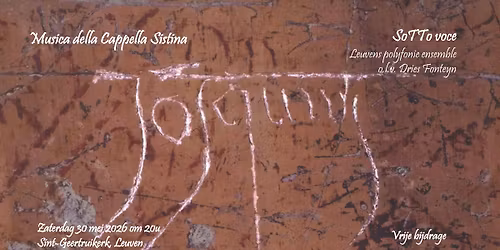 Musica della Cappella Sistina
SoTTo voce
Leuvens polyfonie ensemble
o.l.v. Dries Fonteyn
Josquinus
Zaterdag 30 mei 2026 om 20u
Sint-Geertruikerk, Leuven
Vrije bijdrage